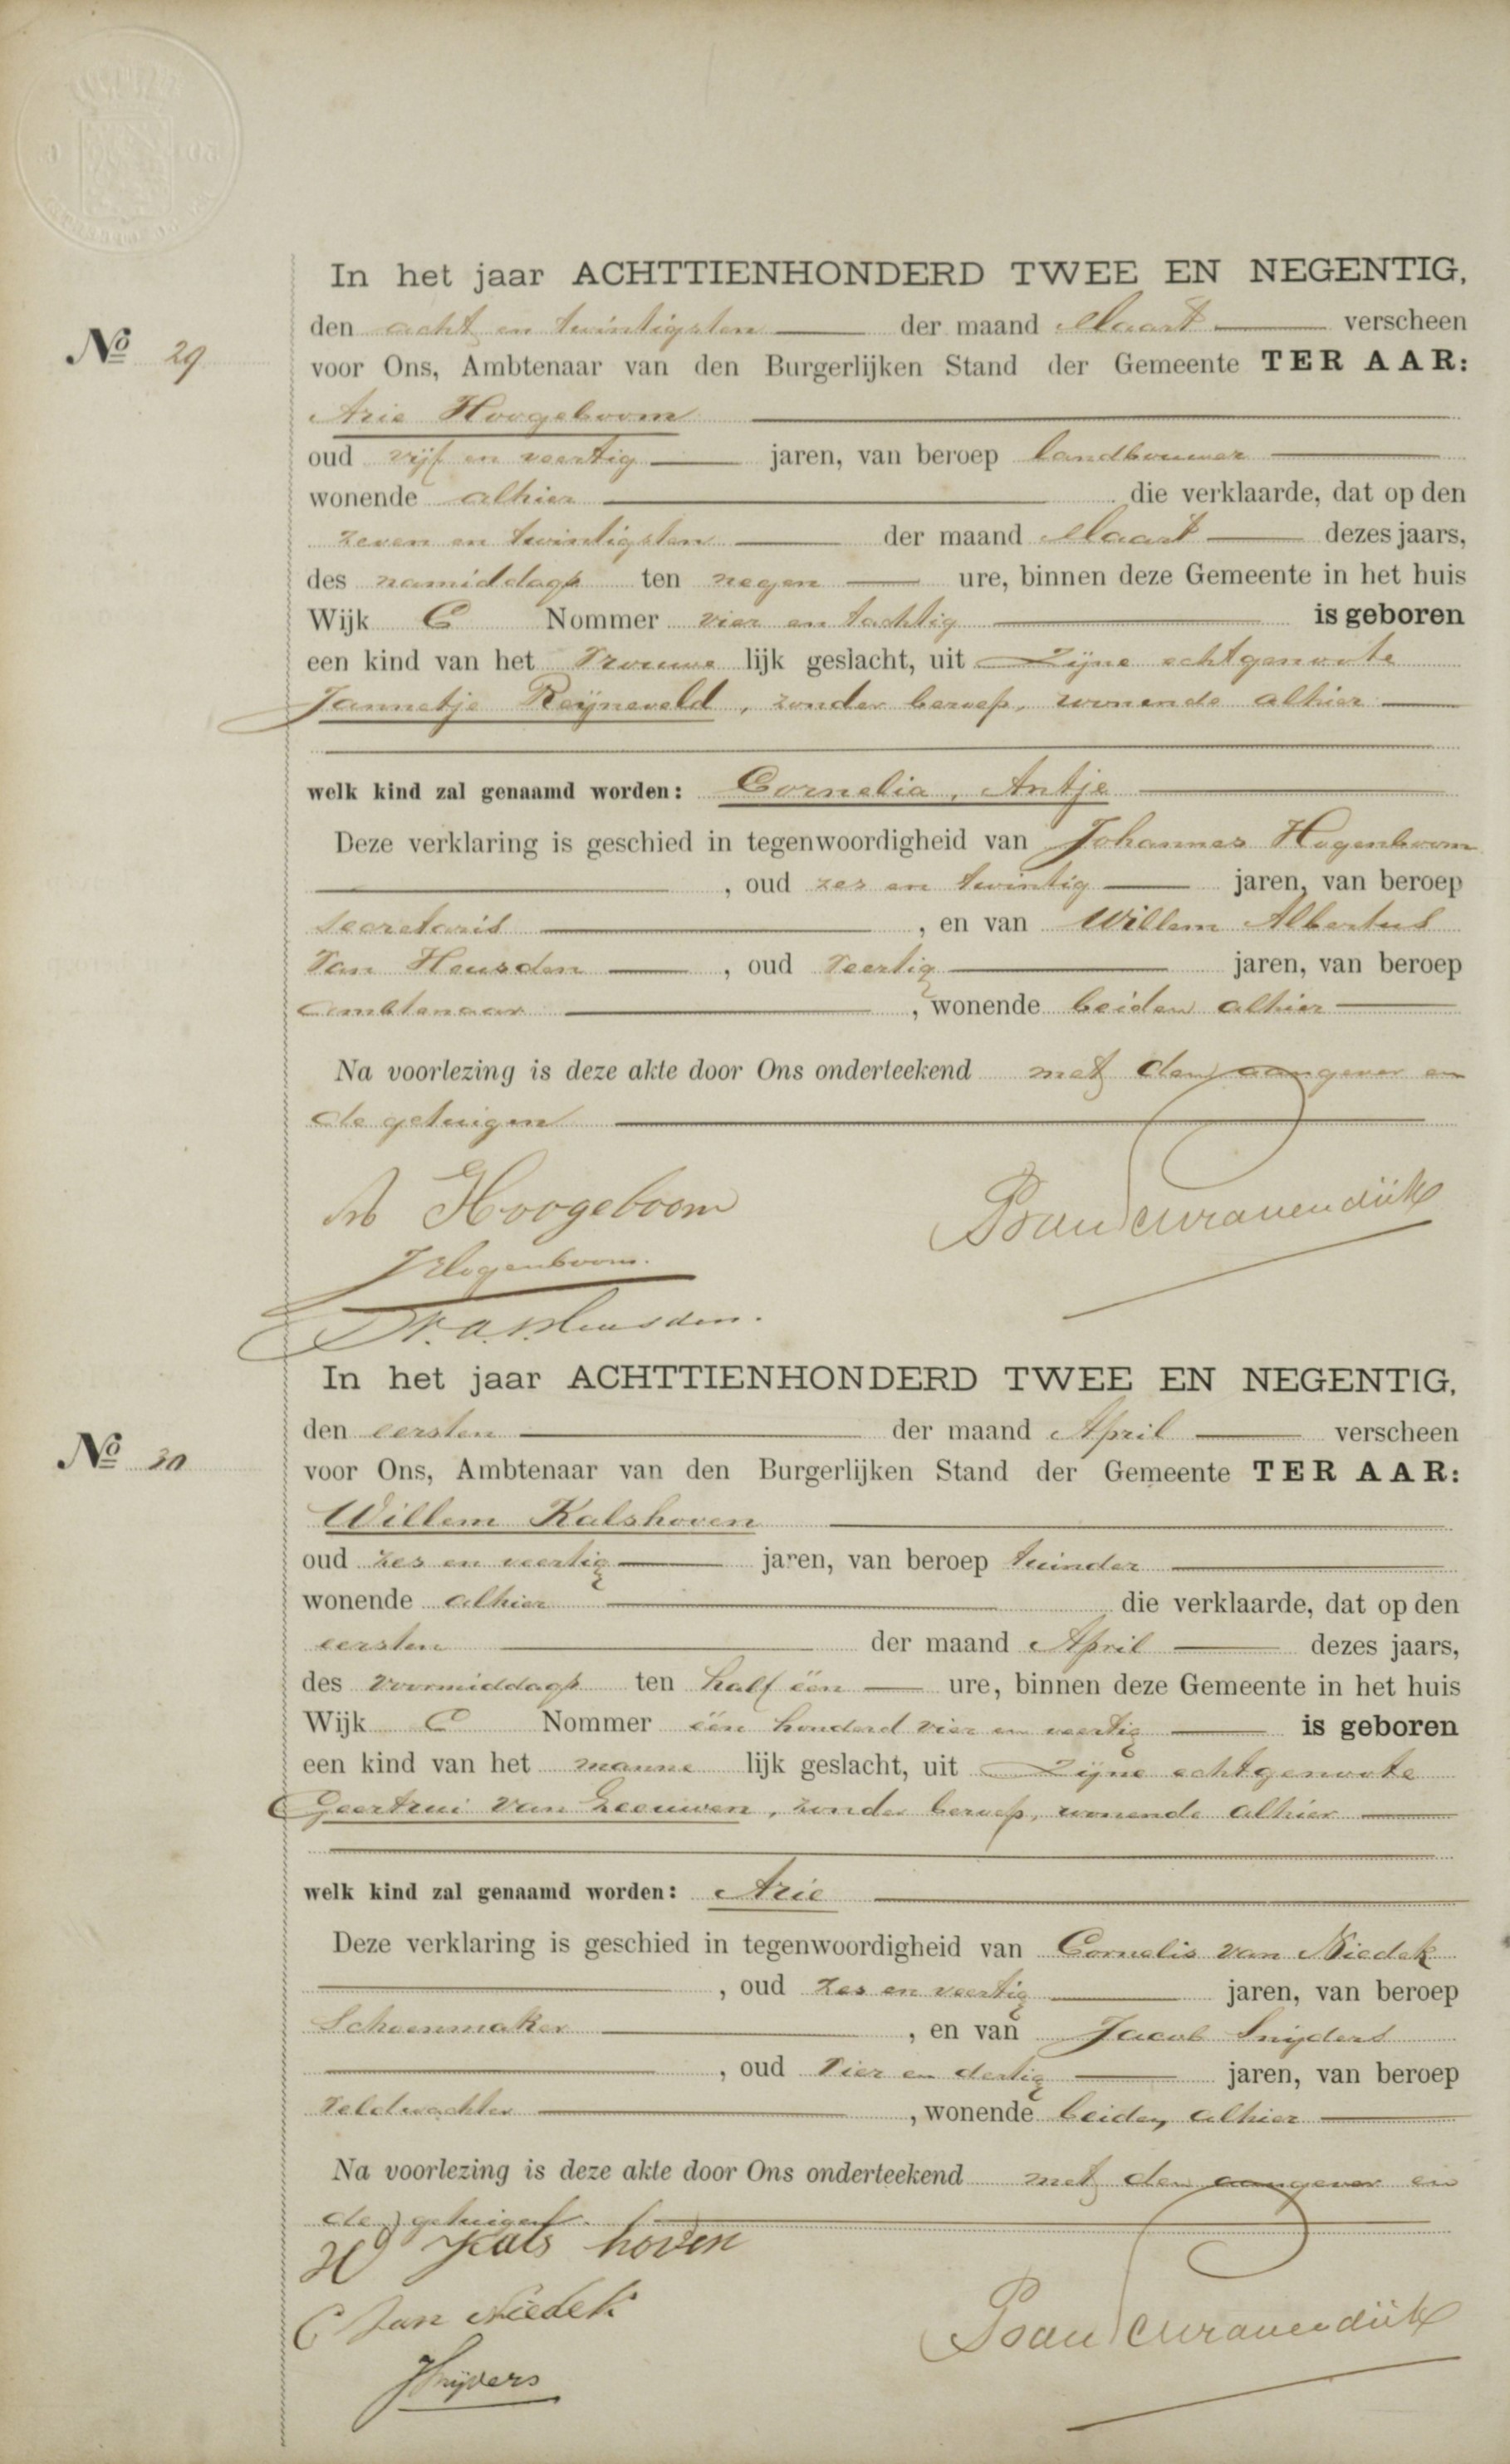 In het jaar ACHTTIENHONDERD TWEE EN NEGENTIG,
den acht en twintigsten der maand Maart verscheen
No 29
voor Ons, Ambtenaar van den Burgerlijken Stand der Gemeente TER AAR:
Arie Hoogeboom
oud vijf en veertig jaren, van beroep landbouwer
wonende alhier die verklaarde, dat op den
zeven en twintigsten der maand Maart dezes jaars,
des namiddags ten negen ure, binnen deze Gemeente in het huis
Wijk C Nommer vier en tachtig is geboren
een kind van het Vrouwe lijk geslacht, uit Zijne echtgenoote
Jannetje Reijneveld, zonder beroep, wonende alhier
welk kind zal genaamd worden: Cornelia, Antje
Deze verklaring is geschied in tegenwoordigheid van Johannes Hogenboom
, oud zes en twintig jaren, van beroep
secretaris, en van Willem Albertus
Van Heusden, oud Veertig jaren, van beroep
ambtenaar, wonende beiden alhier
Na voorlezing is deze akte door Ons onderteekend met den aangever en
de getuigen
A Hoogeboom
J Hogenboom.
W.A.V.Heusden.
In het jaar ACHTTIENHONDERD TWEE EN NEGENTIG,
den eersten der maand April verscheen
No 30
voor Ons, Ambtenaar van den Burgerlijken Stand der Gemeente TER AAR:
Willem Kalshoven
oud zes en veertig jaren, van beroep tuinder
wonende alhier die verklaarde, dat op den
eersten der maand April dezes jaars,
des Voormiddags ten half één ure, binnen deze Gemeente in het huis
Wijk C Nommer één honderd vier en veertig is geboren
een kind van het manne lijk geslacht, uit Zijne echtgenoote
Geertrui Van Leeuwen, zonder beroep, wonende alhier
welk kind zal genaamd worden: Arie
Deze verklaring is geschied in tegenwoordigheid van Cornelis van Niedek
, oud Zes en veertig jaren, van beroep
Schoenmaker, en van Jacob Snijders
, oud Vier en dertig jaren, van beroep
Veldwachter, wonende beiden alhier
Na voorlezing is deze akte door Ons onderteekend met den aangever en
de getuigen.
W Kals hoven
C Van Niedek
JSnijders